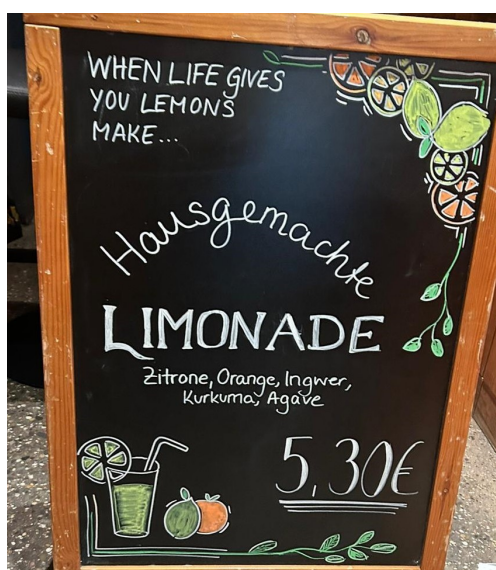 WHEN LIFE GIVES
YOU LEMONS
MAKE...
Hausgemachte
LIMONADE
Zitrone, Orange, Ingwer,
Kurkuma, Agave
5,30€